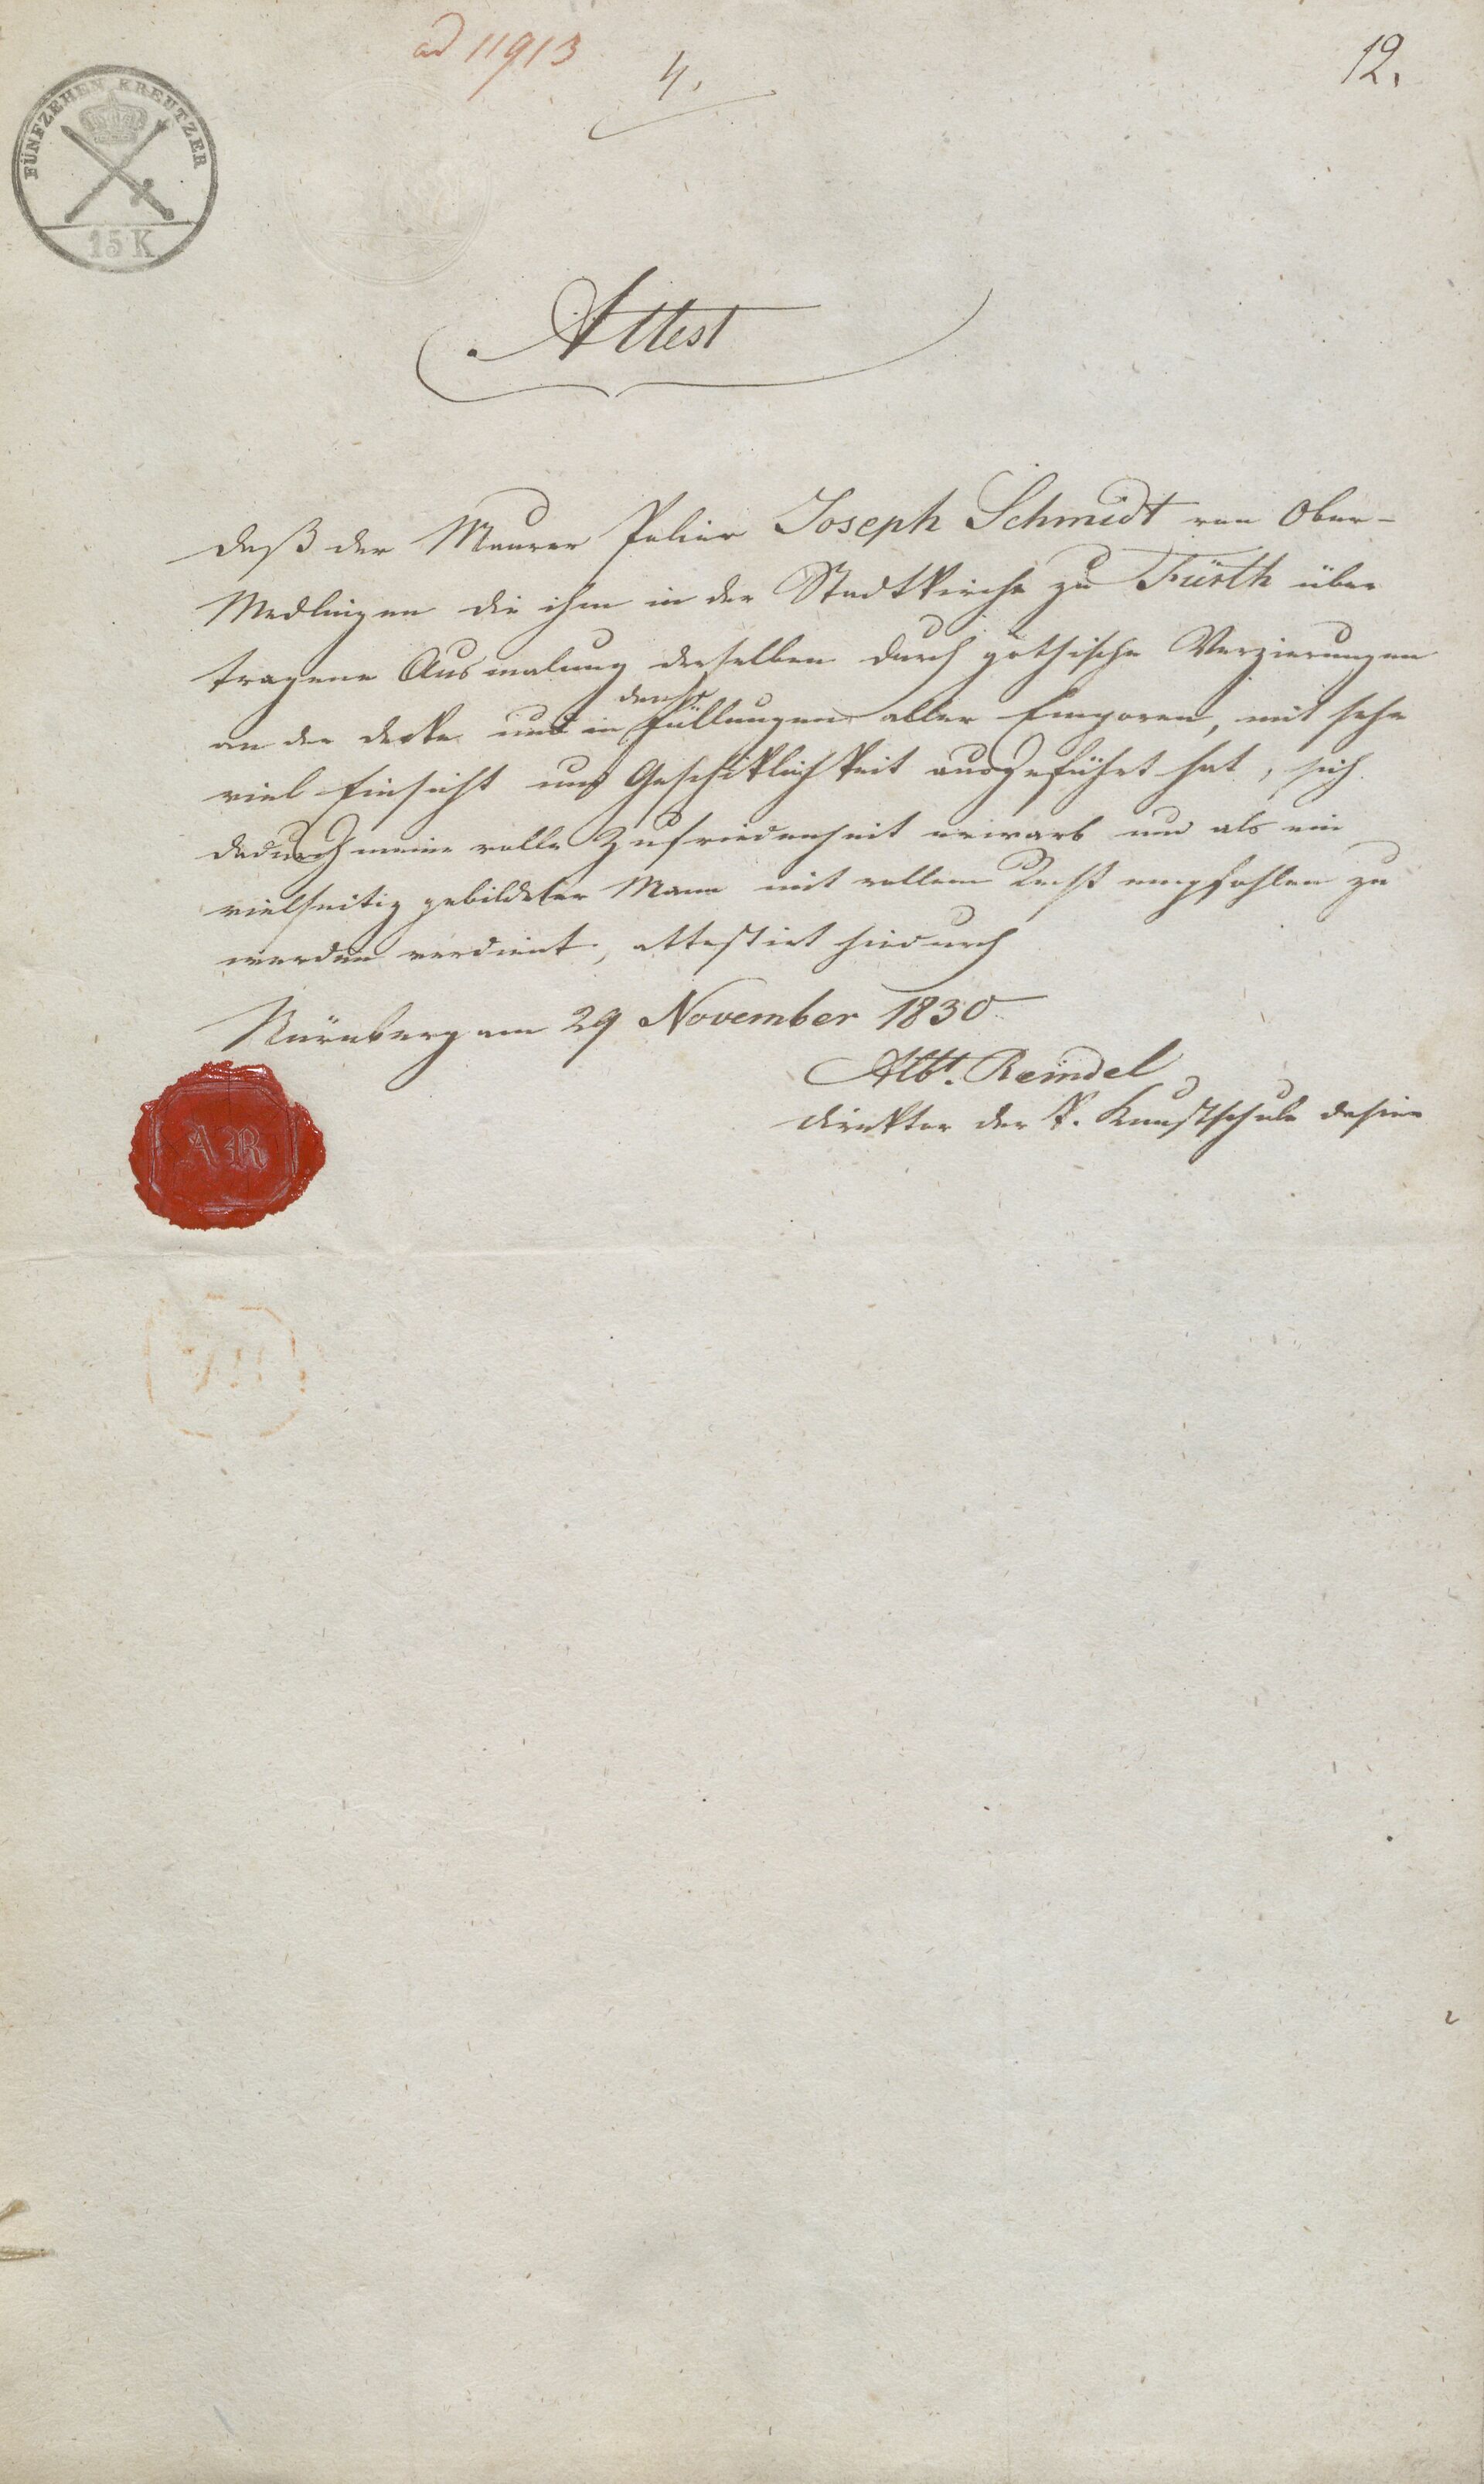 ad 11913
4.
12.
FÜNFZEHEN KREUTZER
15 K
Attest
daß der Maurer Palier Joseph Schmidt von Ober-
Medlingen die ihm in der Stadtkirche zu Fürth über
tragene Ausmalung derselben durch gothische Verzierungen
an der Decke und in den Füllungen aller Emporen, mit sehr
viel Einsicht und Geschiklichkeit ausgeführt hat, sich
dadurch meine volle Zufriedenheit erwarb und als ein
vielseitig gebildeter Mann mit vollem Recht empfohlen zu
werden verdient, attestirt hiedurch
Nürnberg am 29 November 1830
Albt. Reindel
Direktor der k. Kunstschule dahier
AR